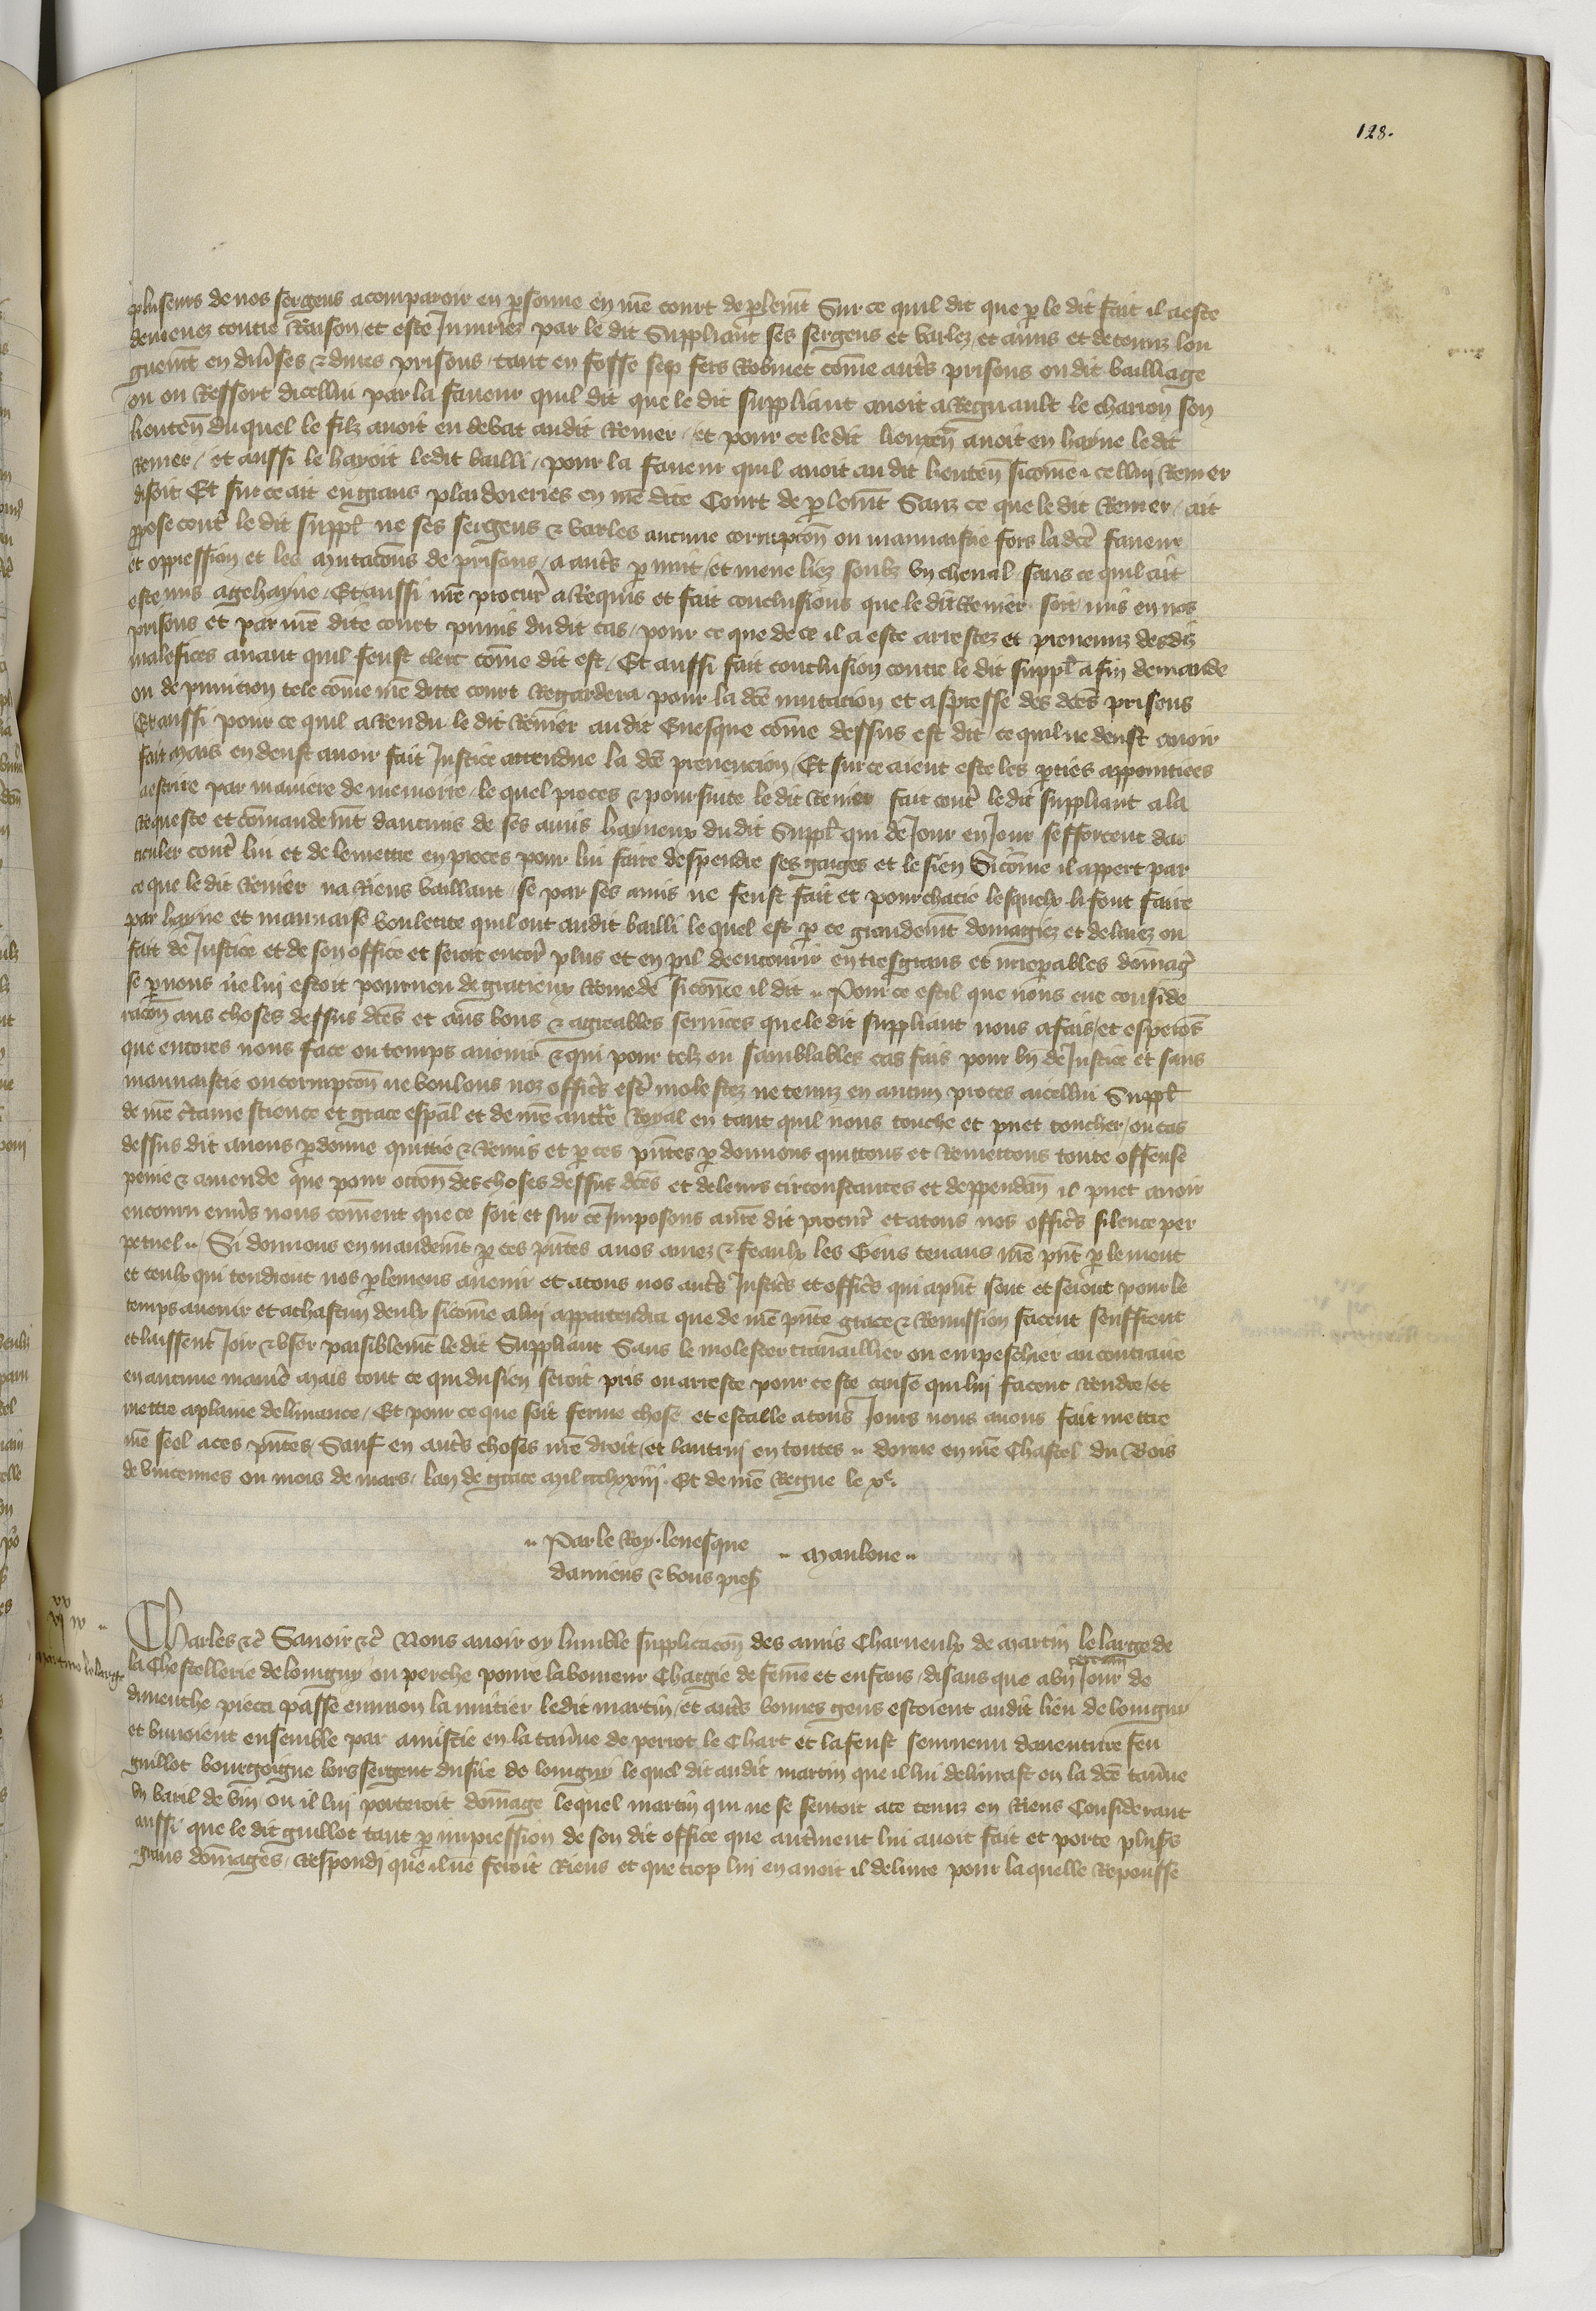 128.
pluseurs de nos sergens a comparoir en psonne en nre court de plemt Sur ce quil dit que p le dit fait il a este
demenez contre Raison et este Iniuriez par le dit Suppliant ses sergens et varlez et amis et detenuz lon
guemt en diuses & dures prisons tant en fosse sep fers Robinet come autrs prisons ou dit bailliage
ou ou Ressort dicellui par la faueur quil dit que le dit suppliant auoit a Regnault le charron son
lieuten duquel le filz auoit eu debat audit Renier / et pour ce le dit lieuten auoit en hayne le dit
Renier / et aussi le hayoit ledit bailli / pour la faueur quil auoit au dit lieuten sicome icellui Renier
disoit Et sur ce ait eu grans plaidoieries en nre dite Court de plemt Sanz ce que le dit Renier / ait
ppose contr le dit suppl ne ses sergens & varles aucune corrupcon ou mauuaistie fors la dce faueur
et oppression et les mutacons de prisons / a autrs p nuit / et mene liez soubz vn cheual sans ce quil ait
este mis a gehayne / Et aussi nre procur a Requis et fait conclusions que le dit Renier soit mis en nos
prisons et par nre dite court punis du dit cas / pour ce que de ce il a este arrestez et preuenuz desdiz
malefices auant quil feust clerc come dit est / Et aussi fait conclusion contre le dit suppl a fin demande
ou de punition tele come nre ditte court Regardera pour la dce mutacion et aspresse des dces prisons
Et aussi pour ce quil a Rendu le dit Renier audit Euesque come dessus est dit ce quil ne deust auoir
fait mais en deust auoir fait Iustice attendue la dce preuencion / Et sur ce aient este les pties appointiees
a escrire par maniere de memoire le quel proces & poursuite le dit Renier fait contr le dit suppliant a la
Requeste et comandemt daucuns de ses amis hayneux du dit Suppl qui de Iour en Iour sefforcent dar
ticuler contr lui et de le mettre en proces pour lui faire despendre ses gaiges et le sien Sicome il appert par
ce que le dit Renier na Riens vaillant se par ses amis ne feust fait et pourchacie lesquelx li font faire
par hayne et mauuaise voulente quil ont audit bailli le quel est p ce grandemt domagiez et deliuez ou
fait de Iustice et de son office et seroit encor plus et en pil de encourir en tresgrans et inrepables domag
se p nous ne lui estoit pourueu de gracieux Remede sicome il dit Pour ce est il que nous eue conside
racon aus choses dessus dces et aus bons & agreables seruices que le dit suppliant nous a fais et esperons
que encores nous face ou temps auenir & qui pour telz ou samblables cas fais pour bn de Iustice et sans
mauuaistie ou corrupcon ne voulons noz officrs estr molestez ne tenuz en aucun proces a icellui Suppl
de nre ctaine science et grace espal et de nre auctte Royal en tant quil nous touche et puet toucher / ou cas
dessus dit auons pdonne quittie & Remis et p ces pntes pdonnons quittons et Remettons toute offense
peine & amende que pour occon des choses dessus dces et de leurs circonstances et deppendan il puet auoir
encouru enuers nous coment que ce soit et sur ce Imposons a nre dit procur et a tous nos officrs silence per
petuel Si donnons en mandemt p ces pntes a nos amez & feaulx les Gens tenans nre pnt plement
et ceulx qui tendront nos plemens auenir et a tous nos autrs Iusticrs et officrs qui a pnt sont et seront pour le
temps auenir et a chascun deulx sicome a lui appartendra que de nre pnte grace & Remission facent seuffrent
et laissent Joir & vser paisiblemt le dit Suppliant Sans le molester trauaillier ou empeschier au contraire
en aucune manier mais tout ce qui du sien seroit pris ou arreste pour ceste cause qui lui facent rendre et
mettre a plaine deliurance / Et pour ce que soit ferme chose et estable a tous Iours nous auons fait mettre
nre seel a ces pntes Sauf en autrs choses nre droit et lautruj en toutes donne en nre Chastel du Bois
de vincennes ou mois de mars lan de grace mil ccclxxiij Et de nre Regne le xe.
Par le Roy leuesque
damiens & vous pres
Manloue
vjxx iv
Martino le large
Charles &c Sauoir &c Nous auoir oy lumble supplicacon des amis Charneulx de Martin le large de
la Chastellerie de longny ou perche poure laboureur Chargie de feme et enfans / disans que a vn certain Iour de
dimenche pieca passe enuiron la mitier ledit martin / et autrs bonnes gens estoient audit lieu de longny
et buuoient ensemble par amistie en la tauene de perrot le Chart et la feust seuruenu dauenture feu
guillot bourgoigne lors sergent du sire de longny le quel dit audit martin que il lui deliurast en la dce tauene
vn baril de vin ou il lui porteroit domage lequel martin qui ne se sentoit a ce tenuz en Riens Considerant
aussi que le dit guillot tant p impression de son dit office que autrement lui auoit fait et porte plusrs
grans domages / Respondi que il ne feroit Riens et que trop lui en auoit il deliure pour la quelle Reponsse